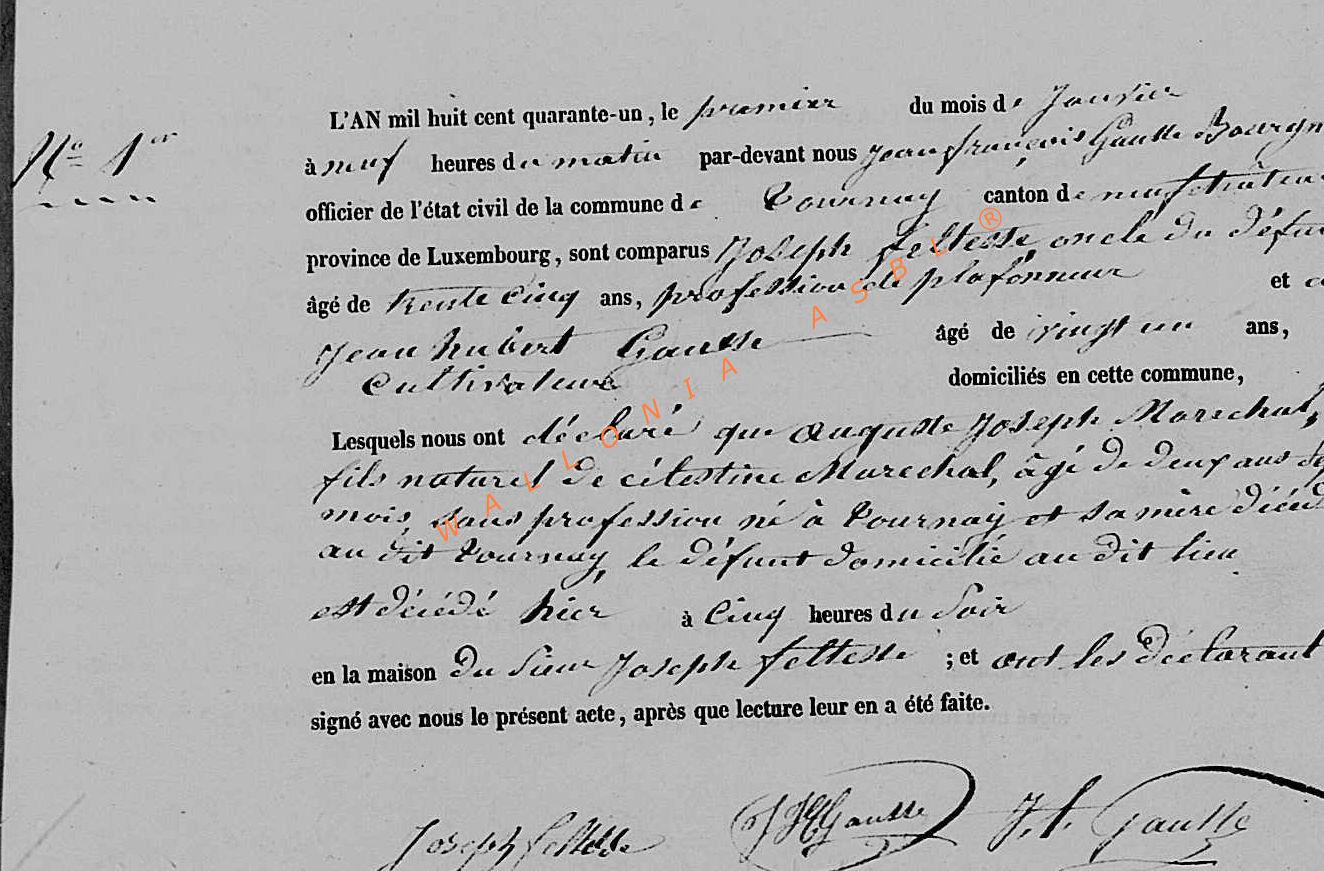 N° 1er
L'AN mil huit cent quarante-un, le premier du mois de Janvier
à neuf heures du matin par-devant nous Jean françois Gausse Bourgm
officier de l'état civil de la commune de Tournay canton de neufchâteau
province de Luxembourg, sont comparus Joseph feltesse oncle du défun
âgé de trente cinq ans, profession de plafonneur et
Jean hubert Gausse âgé de vingt un ans,
Cultivateur domiciliés en cette commune,
Lesquels nous ont déclaré que auguste Joseph Marechal,
fils naturel de célestine Marechal, âgé de deux ans
mois, sans profession né à Tournay et sa mère
au dit Tournay, le défunt domicilié au dit lieu
est décédé hier à Cinq heures du Soir
en la maison du Sieur Joseph feltesse ; et ont les déclarant
signé avec nous le présent acte, après que lecture leur en a été faite.
Joseph feltesse JHGausse J.f. Gausse
WALLONIA ASBL ®